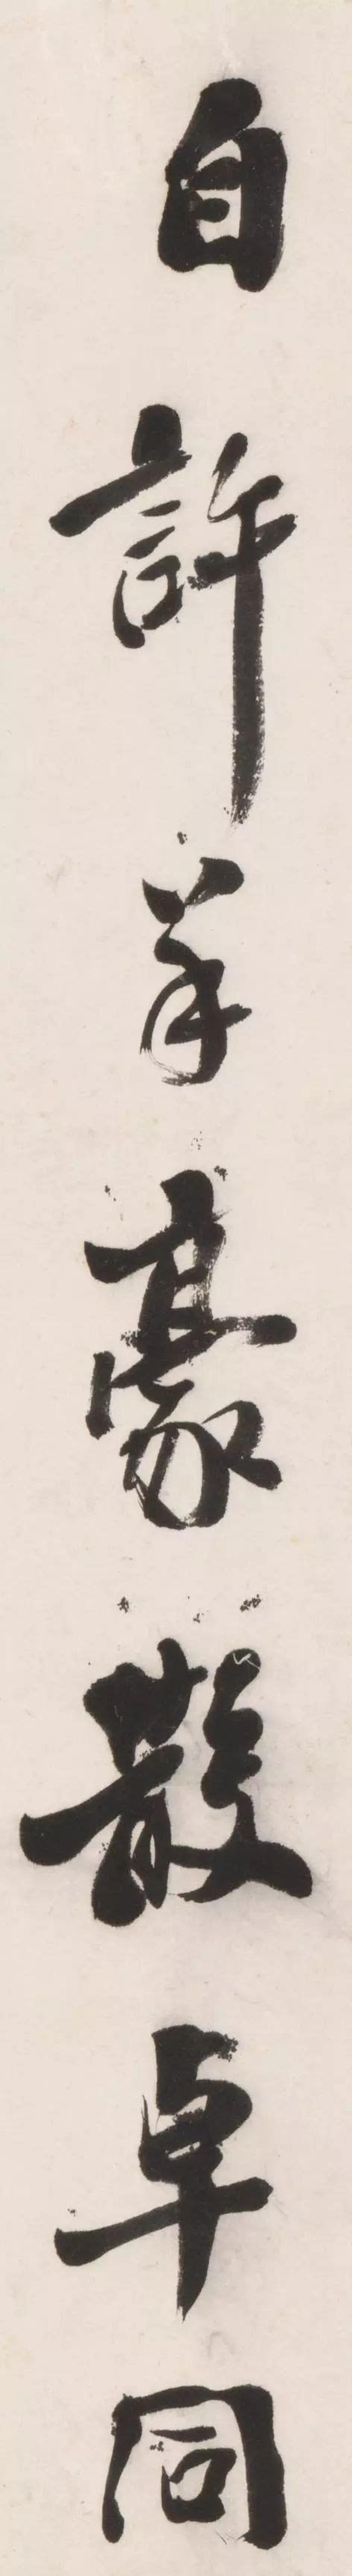 自許羊豪散卓同